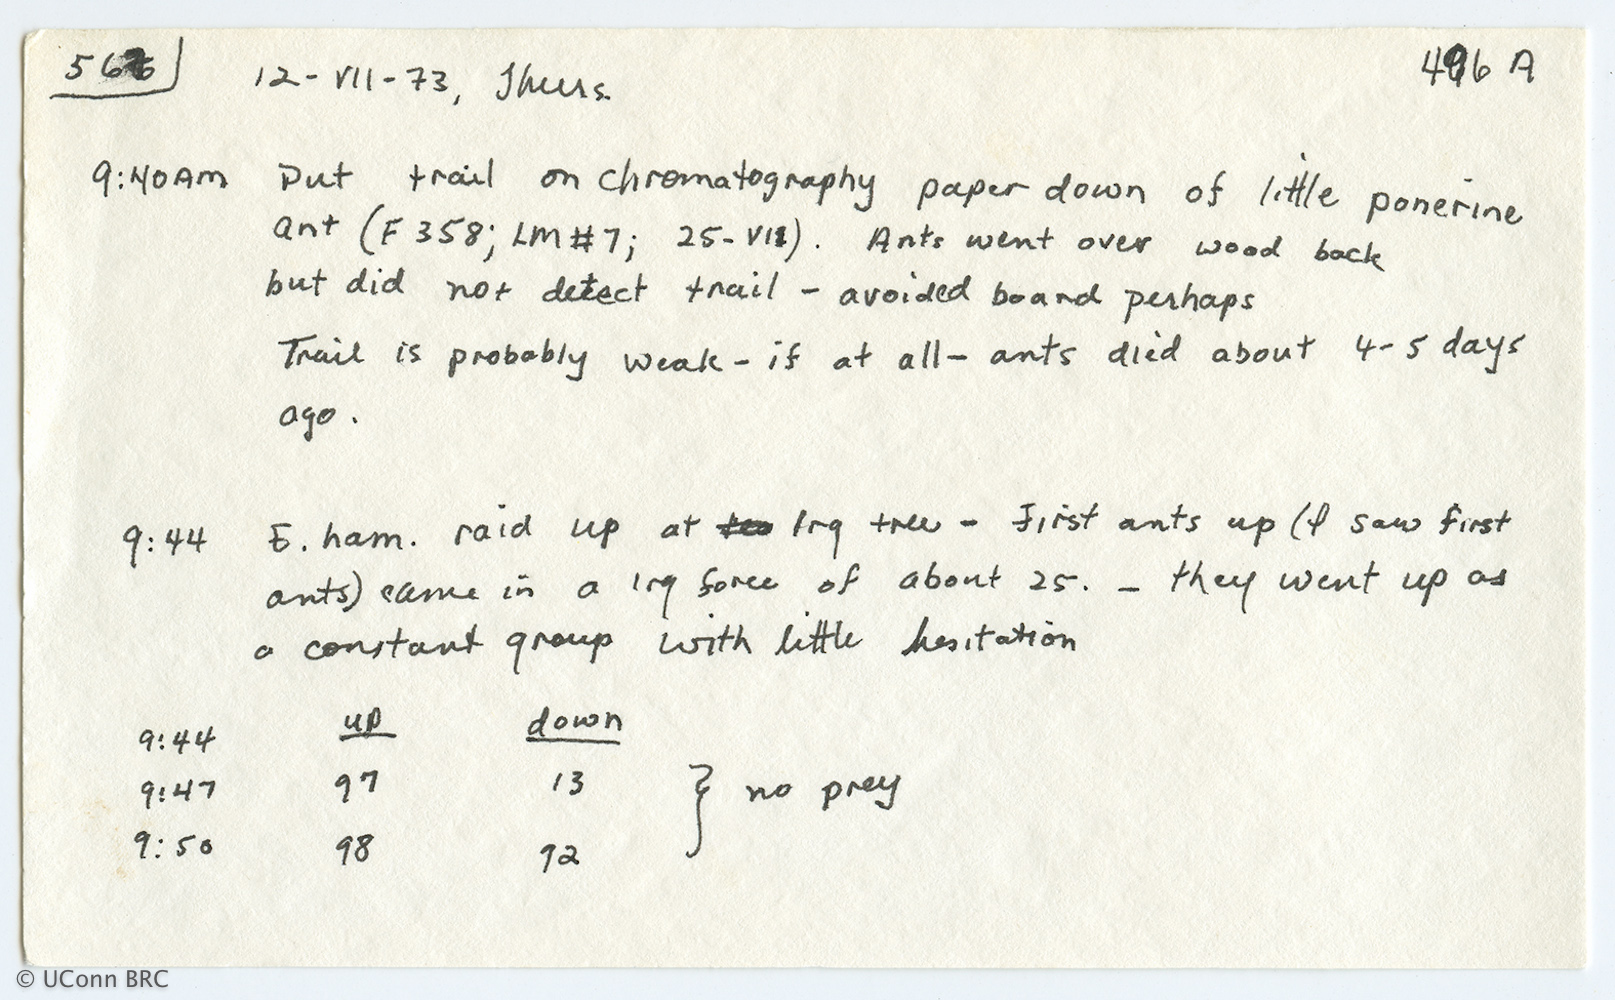 566 12-VII-73, Thurs. 496 A
9:40AM Put trail on chromatography paper down of little ponerine
ant (F 358; LM#7; 25-VII). Ants went over wood back
but did not detect trail - avoided board perhaps
Trail is probably weak - if at all - ants died about 4-5 days
ago.
9:44 E. ham. raid up at lrg tree - First ants up (I saw first
ants) came in a lrg force of about 25. - they went up as
a constant group with little hesitation
up down
9:44
9:47 97 13
9:50 98 92
} no prey
© UConn BRC